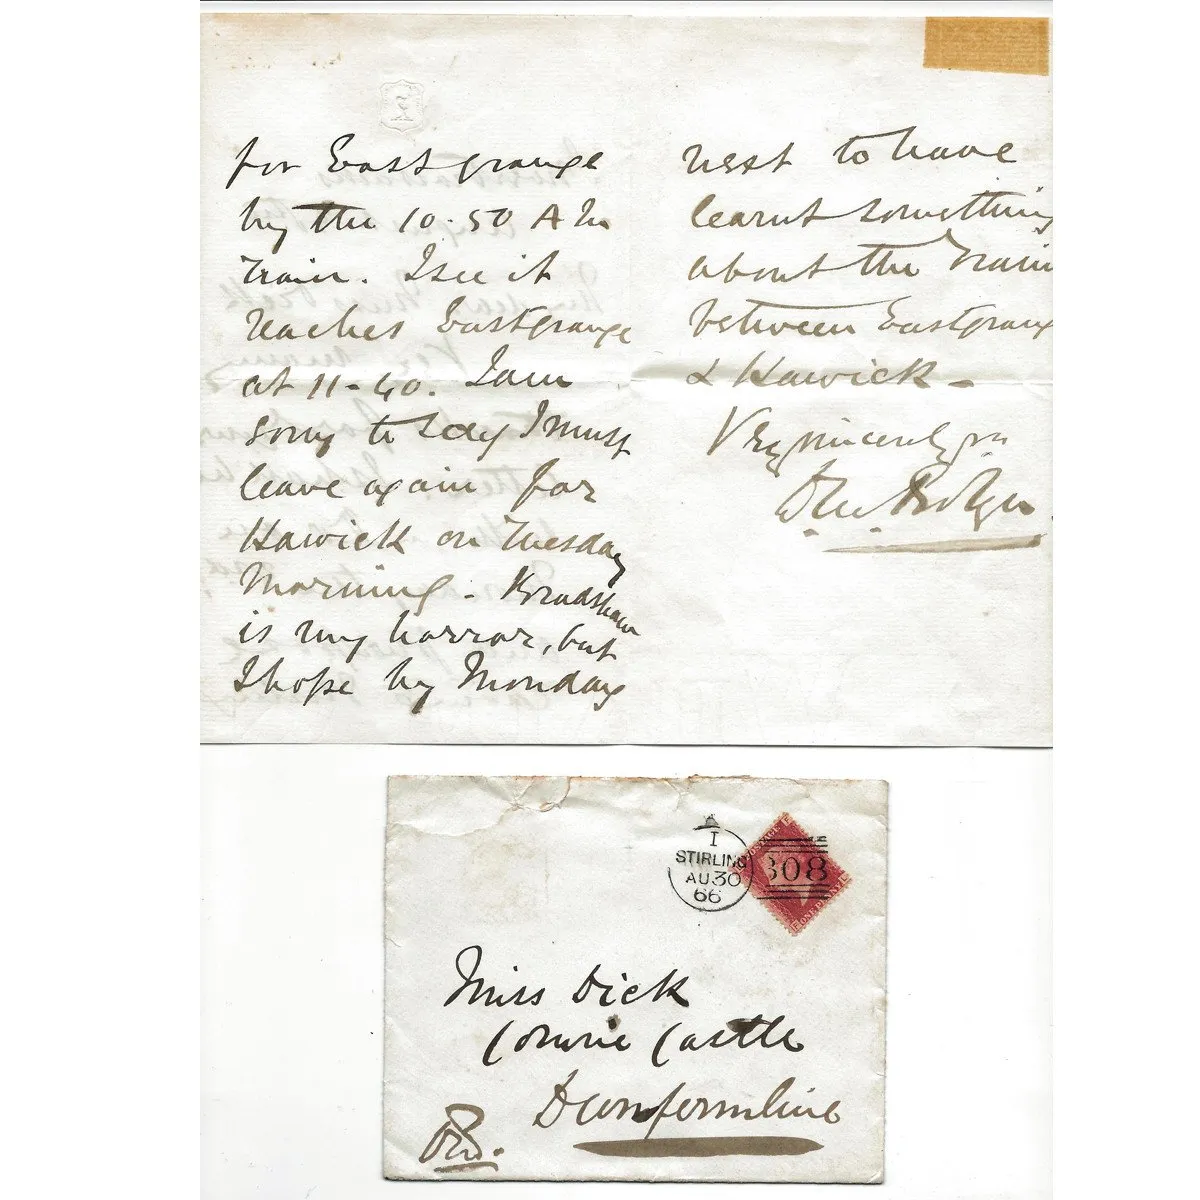 for Eastgrange
by the 10-50 A M
Train. I see it
reaches Eastgrange
at 11-40. I am
sorry to say I must
leave again for
Hawick on Tuesday
Morning - Bradshaw
is my horror, but
I hope by Monday
next to have
learnt something
about the Train
between Eastgrange
& Hawick -
Very sincerely yrs
A
I
STIRLING
AU 30
66
308
POSTAGE
ONE PENNY
Miss Dick
Comrie Castle
Dunfermline